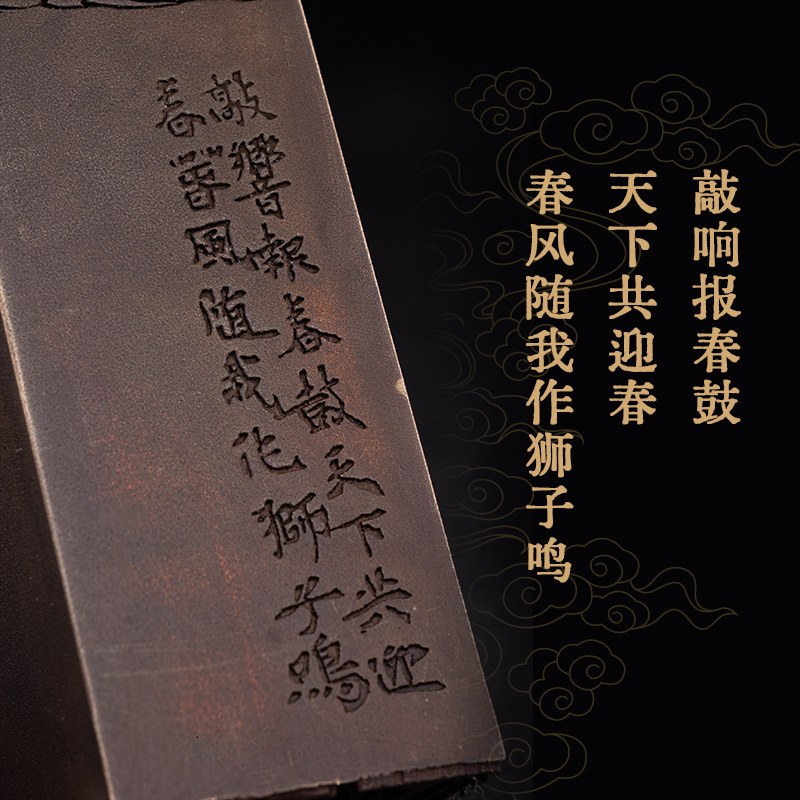 敲響報春鼓天下共迎
春萅風随我作獅子鳴
敲响报春鼓
天下共迎春
春风随我作狮子鸣